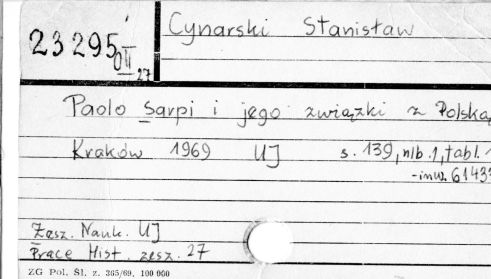 Cynarski Stanisław
23295
OII
27
Paolo Sarpi i jego związki z Polską
Kraków 1969 UJ s. 139, nlb. 1, tabl.
-inw. 6143
Zesz. Nauk. UJ
Prace Hist. zesz. 27
ZG Pol. Śl. z. 365/69. 100 000